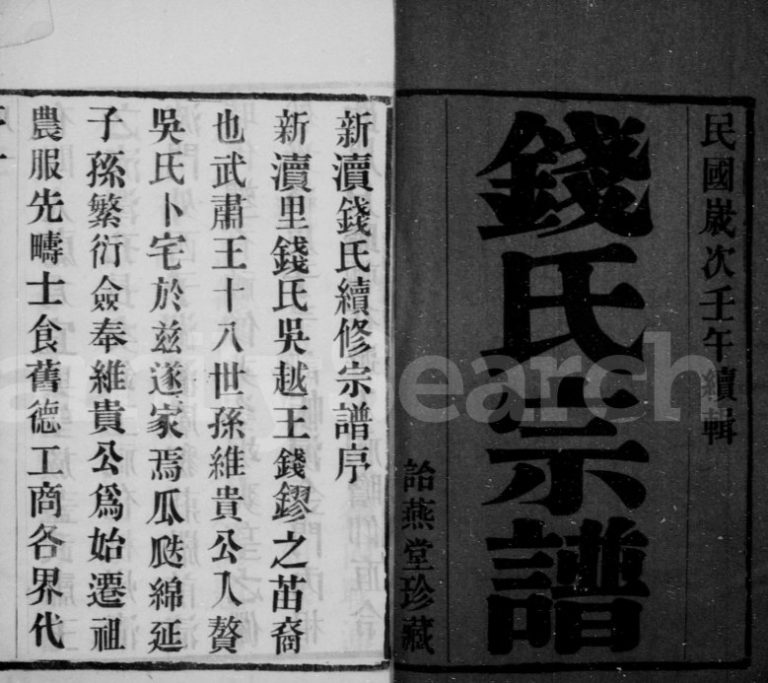 民國歲次壬午續輯
錢氏宗譜
詒燕堂珍藏
新瀆錢氏續修宗譜序
新瀆里錢氏吳越王錢鏐之苗裔
也武肅王十八世孫維貴公入贅
吳氏卜宅於茲遂家焉瓜瓞綿延
子孫繁衍僉奉維貴公爲始遷祖
農服先疇士食舊德工商各界代